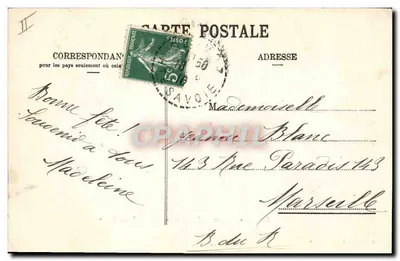 II
CARTE POSTALE
CORRESPONDAN
pour les pays seulement où cela
ADRESSE
5
SAVOIE
Bonne fête!
Souvenir à tous
Madeleine
Mademoiselle
Jeanne Blanc
143 Rue Paradis 143
Marseille
B. du R